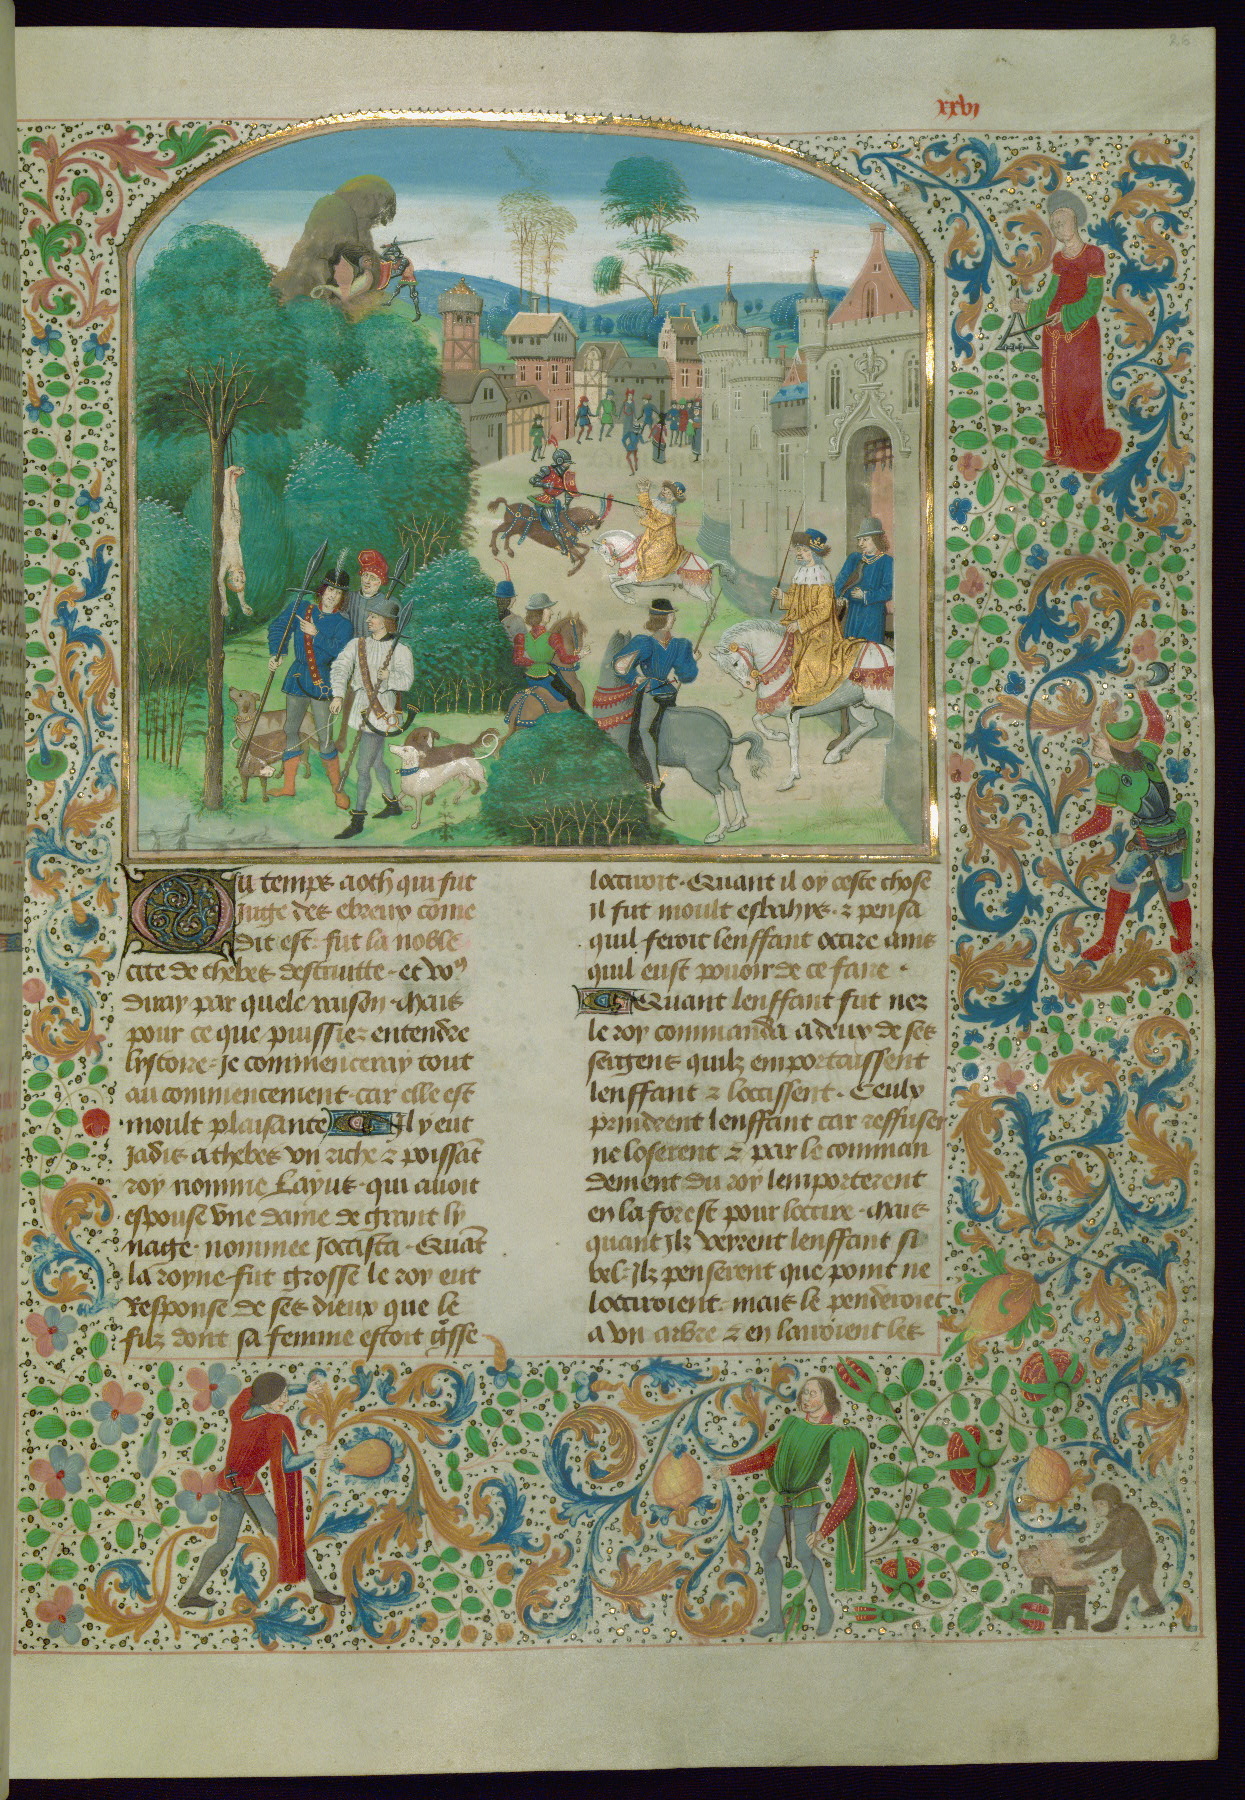 26
xxvi
Du temps aoth qui fut
Juge des ebreux cõme
dit est. fut la noble
cite de thebes destruitte. et vo9
diray par quele raison. Mais
pour ce que puissiez entendre
lystoire. Je commenceray tout
au commencement. car elle est
moult plaisante Il y eut
Jadis a thebes vn riche & poissãt
roy nomme Layus. qui auoit
espouse vne dame de grant ly
nage. nommee Joccista. Quãt
la royne fut grosse le roy eut
Response de ses dieux que le
filz dont sa femme estoit gˢse
locciroit. Quant il oy ceste chose
Il fut moult esbahys. & pensa
quil feroit lenffant occire ains
quil eust pouoir de ce faire.
Quant lenffant fut nez
le roy commanda a deux de ses
sergens quilz emportaissent
lenffant & loccissent. Ceulx
prindrent lenffant car reffuser
ne loserent & par le comman
dement du roy lemporterent
en la forest pour loccire. Mais
quant Ilz veyrent lenffant si
bel. Ilz penserent que point ne
locciroient. mais le penderoient
a vn arbre & en lairoient les